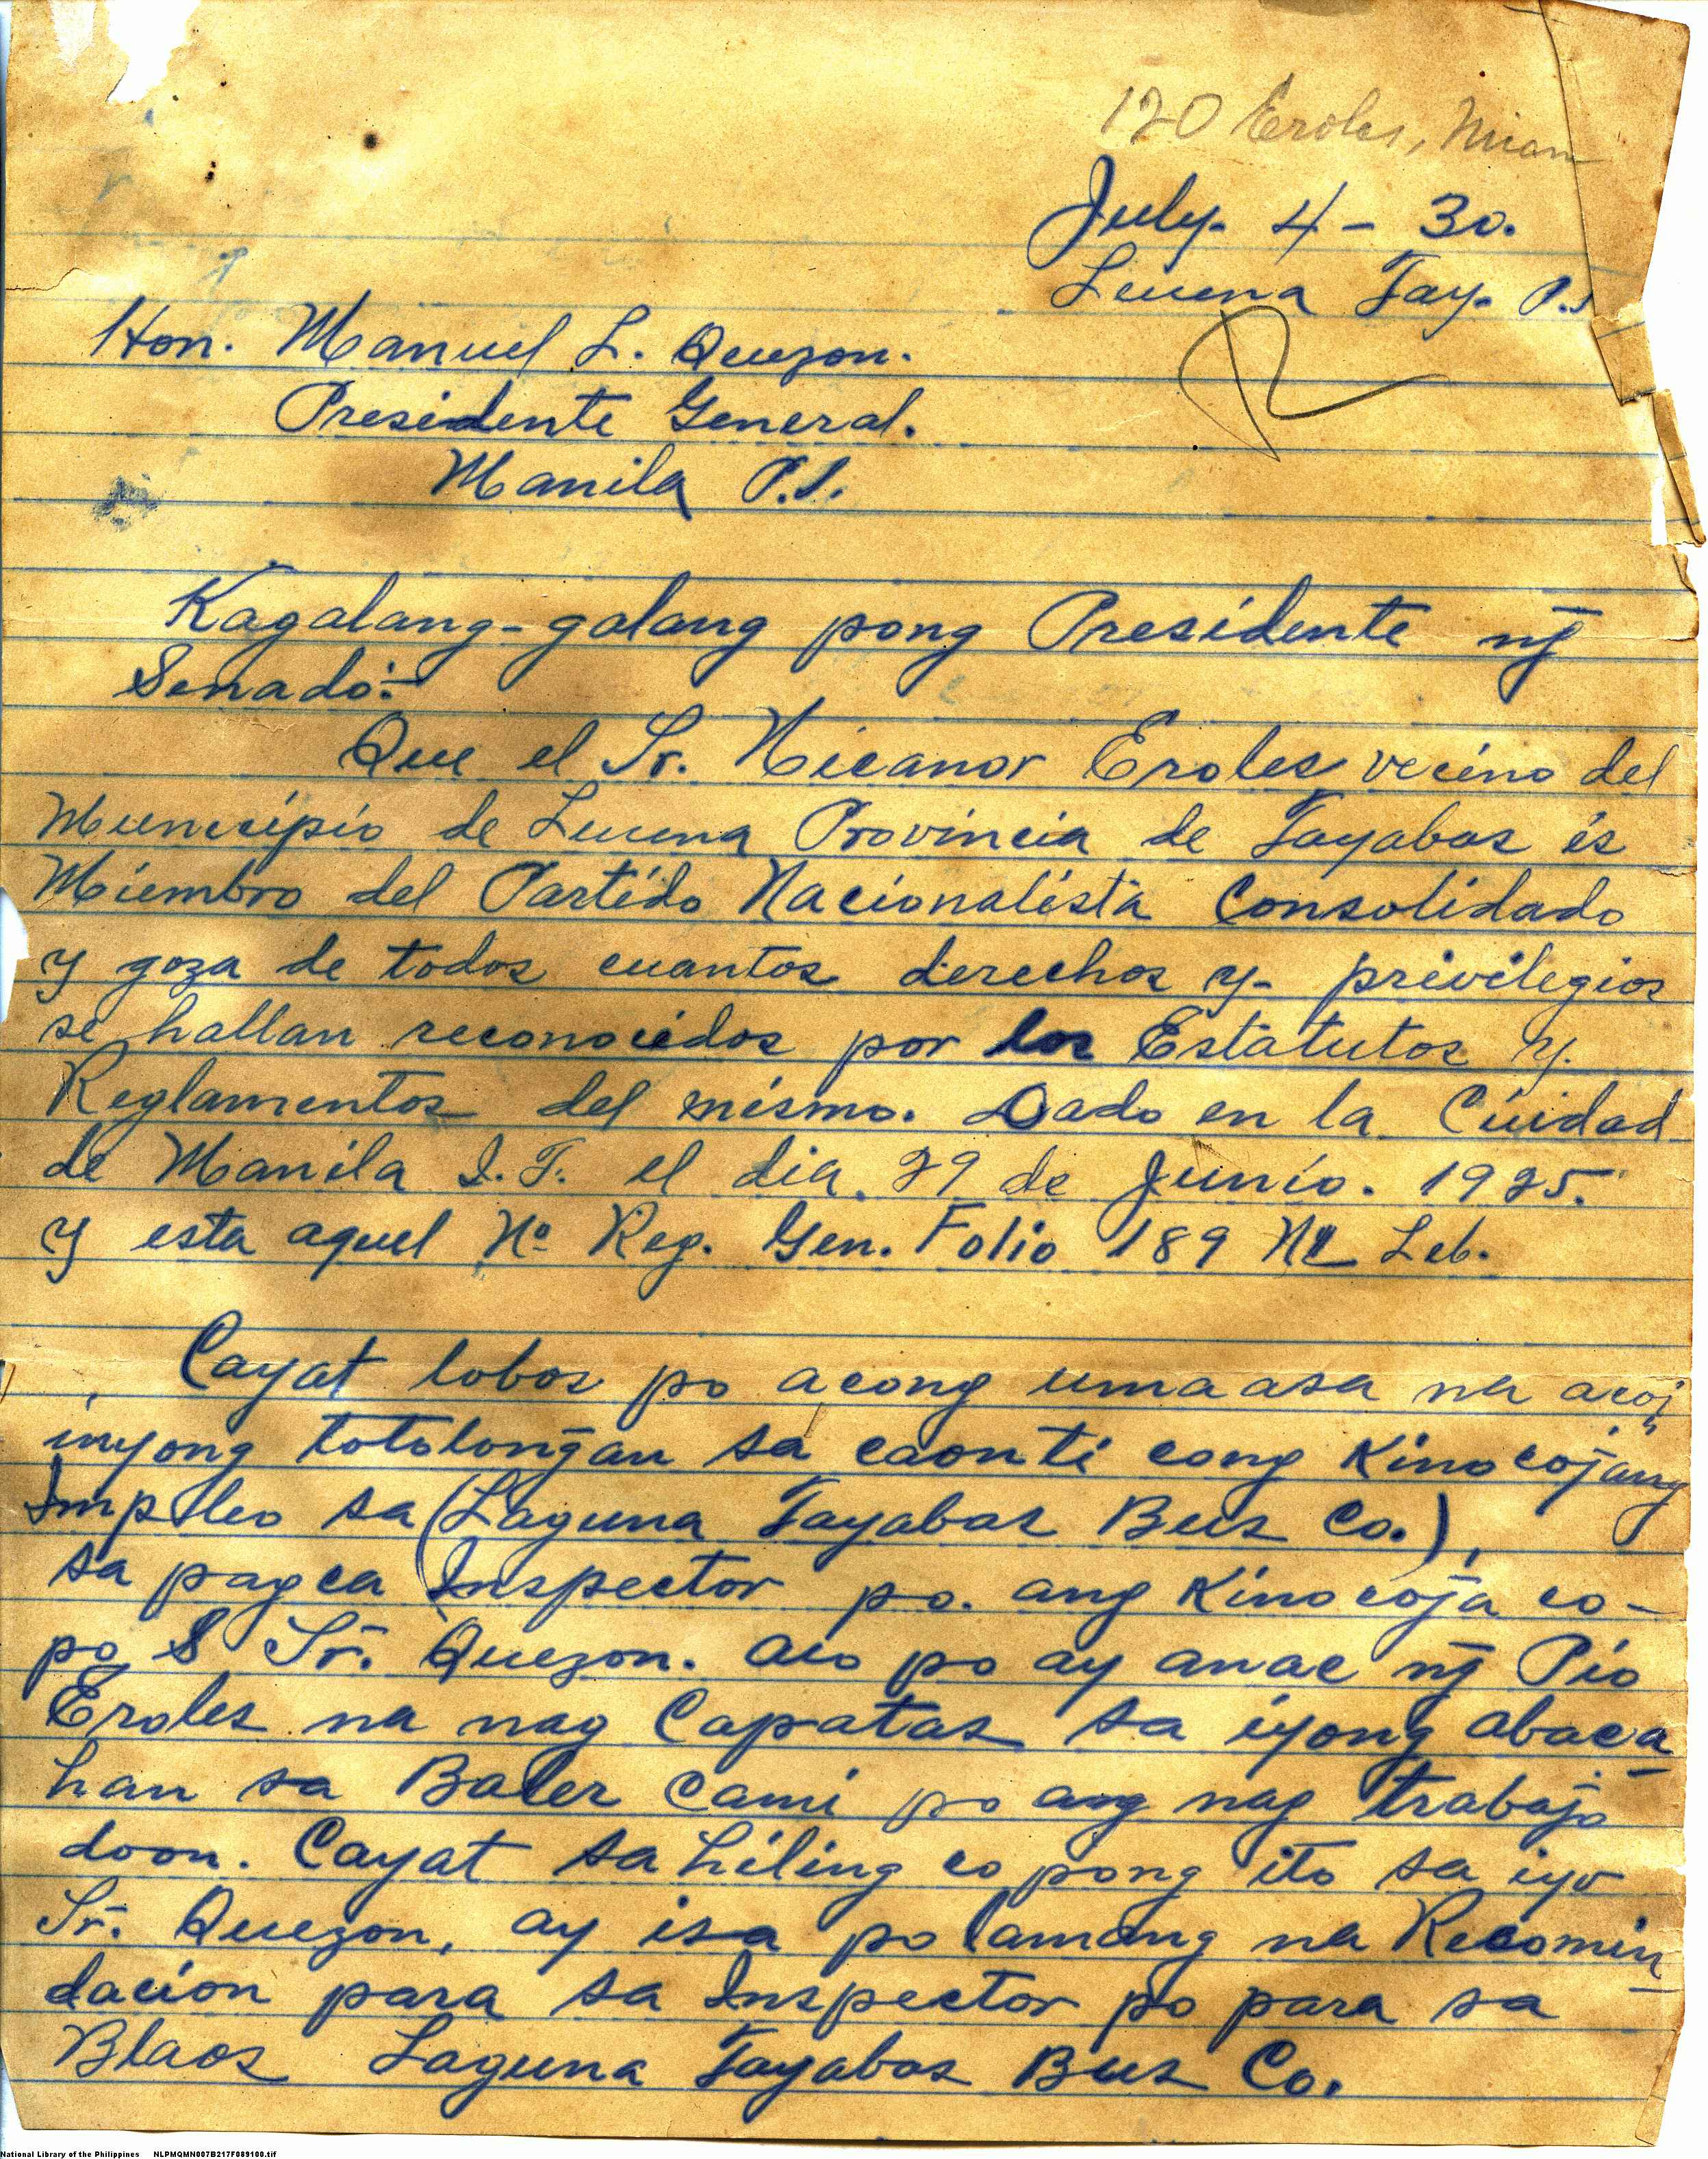 120 Eroles,
July. 4 - 30.
Lucena Tay. P.I
Hon. Manuel L. Quezon.
Presidente General.
Manila P.I.
Kagalang-galang pong Presidente ng̃
Senado:-
Que el Sr. Nicanor Eroles vecino del
Municipio de Lucena Provincia de Tayabas és
Miembro del Partido Nacionalista Consolidado
y goza de todos cuantos derechos y- privilegios
se hallan reconocidos por los Estatutos y.
Reglamentos del mismo. Dado en la Cuidad
de Manila I.F. el dia. 29 de Junio. 1925.
y esta aquel Nº Reg. Gen. Folio 189 Leb.
Cayat lobos po acong umaasa na acoj
inyong totolong̃an sa caonti cong Kinocojang
Impleo sa (Laguna Tayabas Bus Co.),
sa pagca Inspector po. ang Kinocoja co-
po S Sr. Quezon. aco po ay anac ng̃ Pio
Eroles na nag Capatas sa iyong abaca
han sa Baler Cami po ang nag trabajo
doon. Cayat sa hiling co pong ito sa iyo
Sr. Quezon, ay isa po lamang na Recomin
dacion para sa Inspector po para sa
Blaos Laguna Tayabas Bus Co.
National Library of the Philippines NLPMQMN007B217F089100.tif